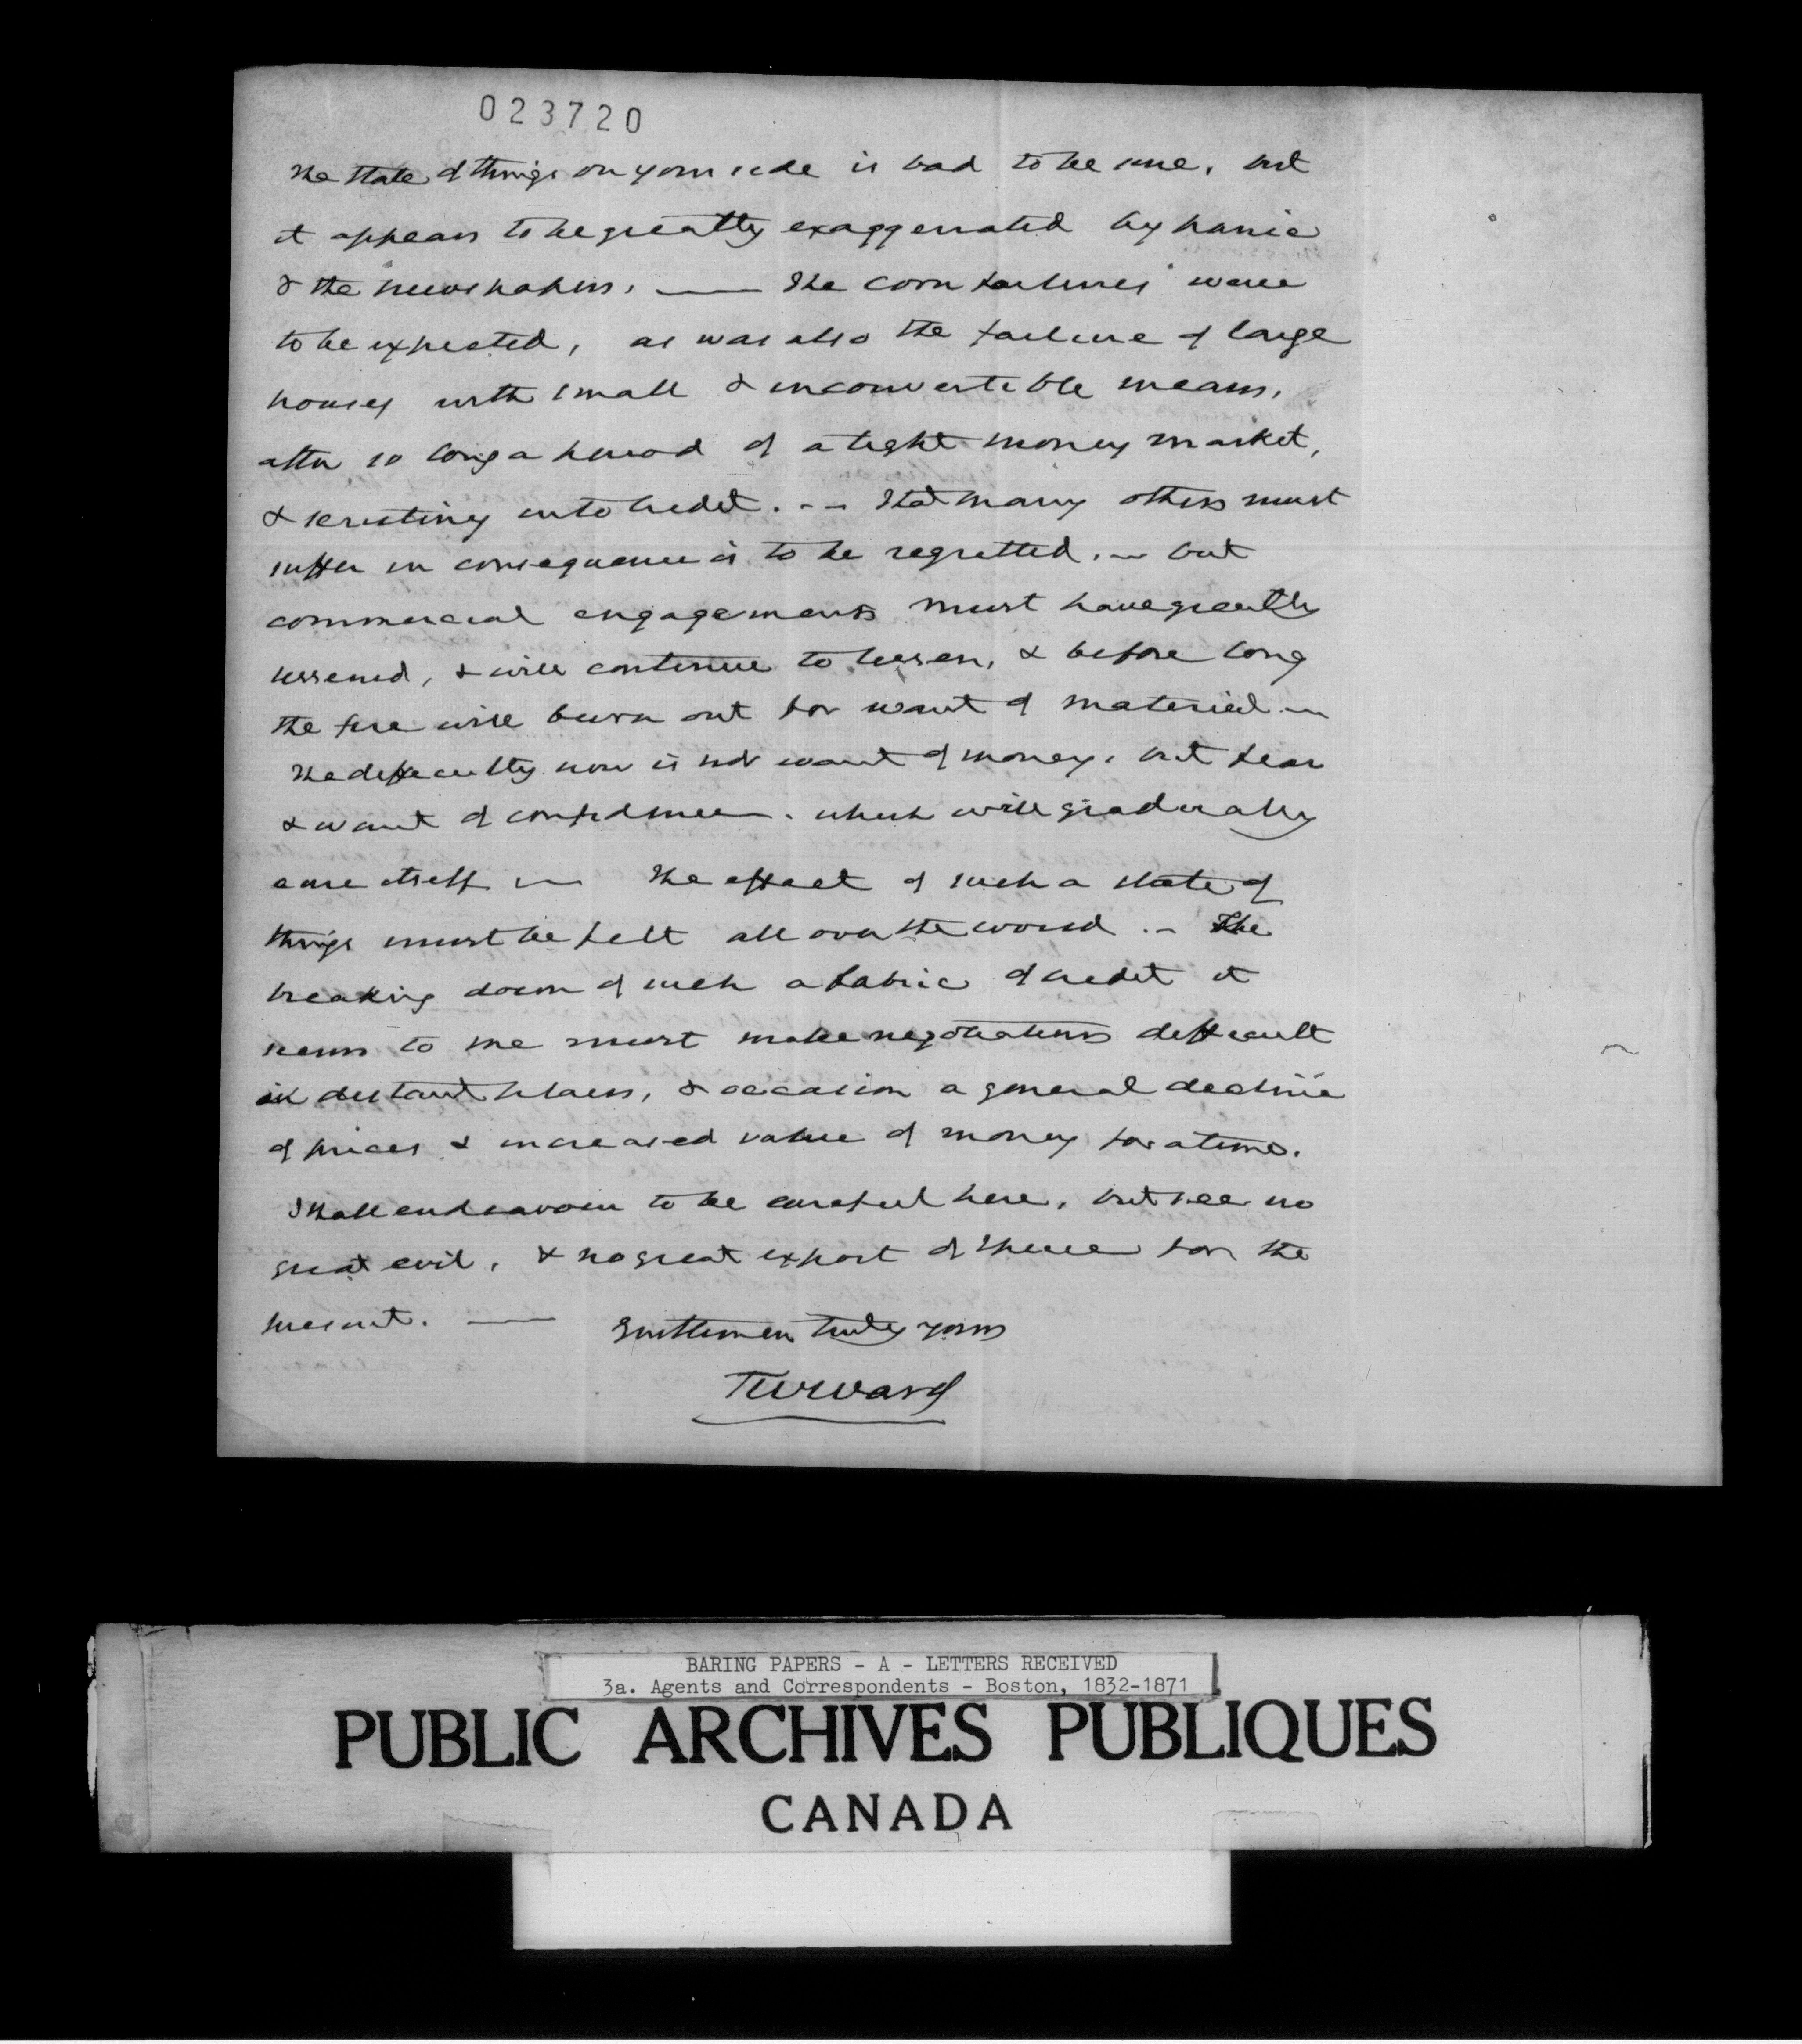 023720
The state of things on your side is bad to be sure, but
it appears to be greatly exaggerated by panic
& the newspapers. — The corn failures were
to be expected, as was also the failure of large
houses with small & inconvertible means,
after so long a period of a tight money market,
& scrutiny into credit. -- That many others must
suffer in consequence is to be regretted. — but
commercial engagements must have greatly
lessened, & will continue to lessen, & before long
the fire will burn out for want of material —
The difficulty now is not want of money, but fear
& want of confidence. which will gradually
cure itself — The effect of such a state of
things must be felt all over the world. — The
breaking down of such a fabric of credit it
seems to me must make negotiations difficult
in distant places, & occasion a general decline
of prices & increased value of money for a time.
I shall endeavour to be careful here, but see no
great evil, & no great export of specie for the
present. — Gentlemen truly yours
TWWard
BARING PAPERS - A - LETTERS RECEIVED
3a. Agents and Correspondents - Boston, 1832-1871
PUBLIC ARCHIVES PUBLIQUES
CANADA